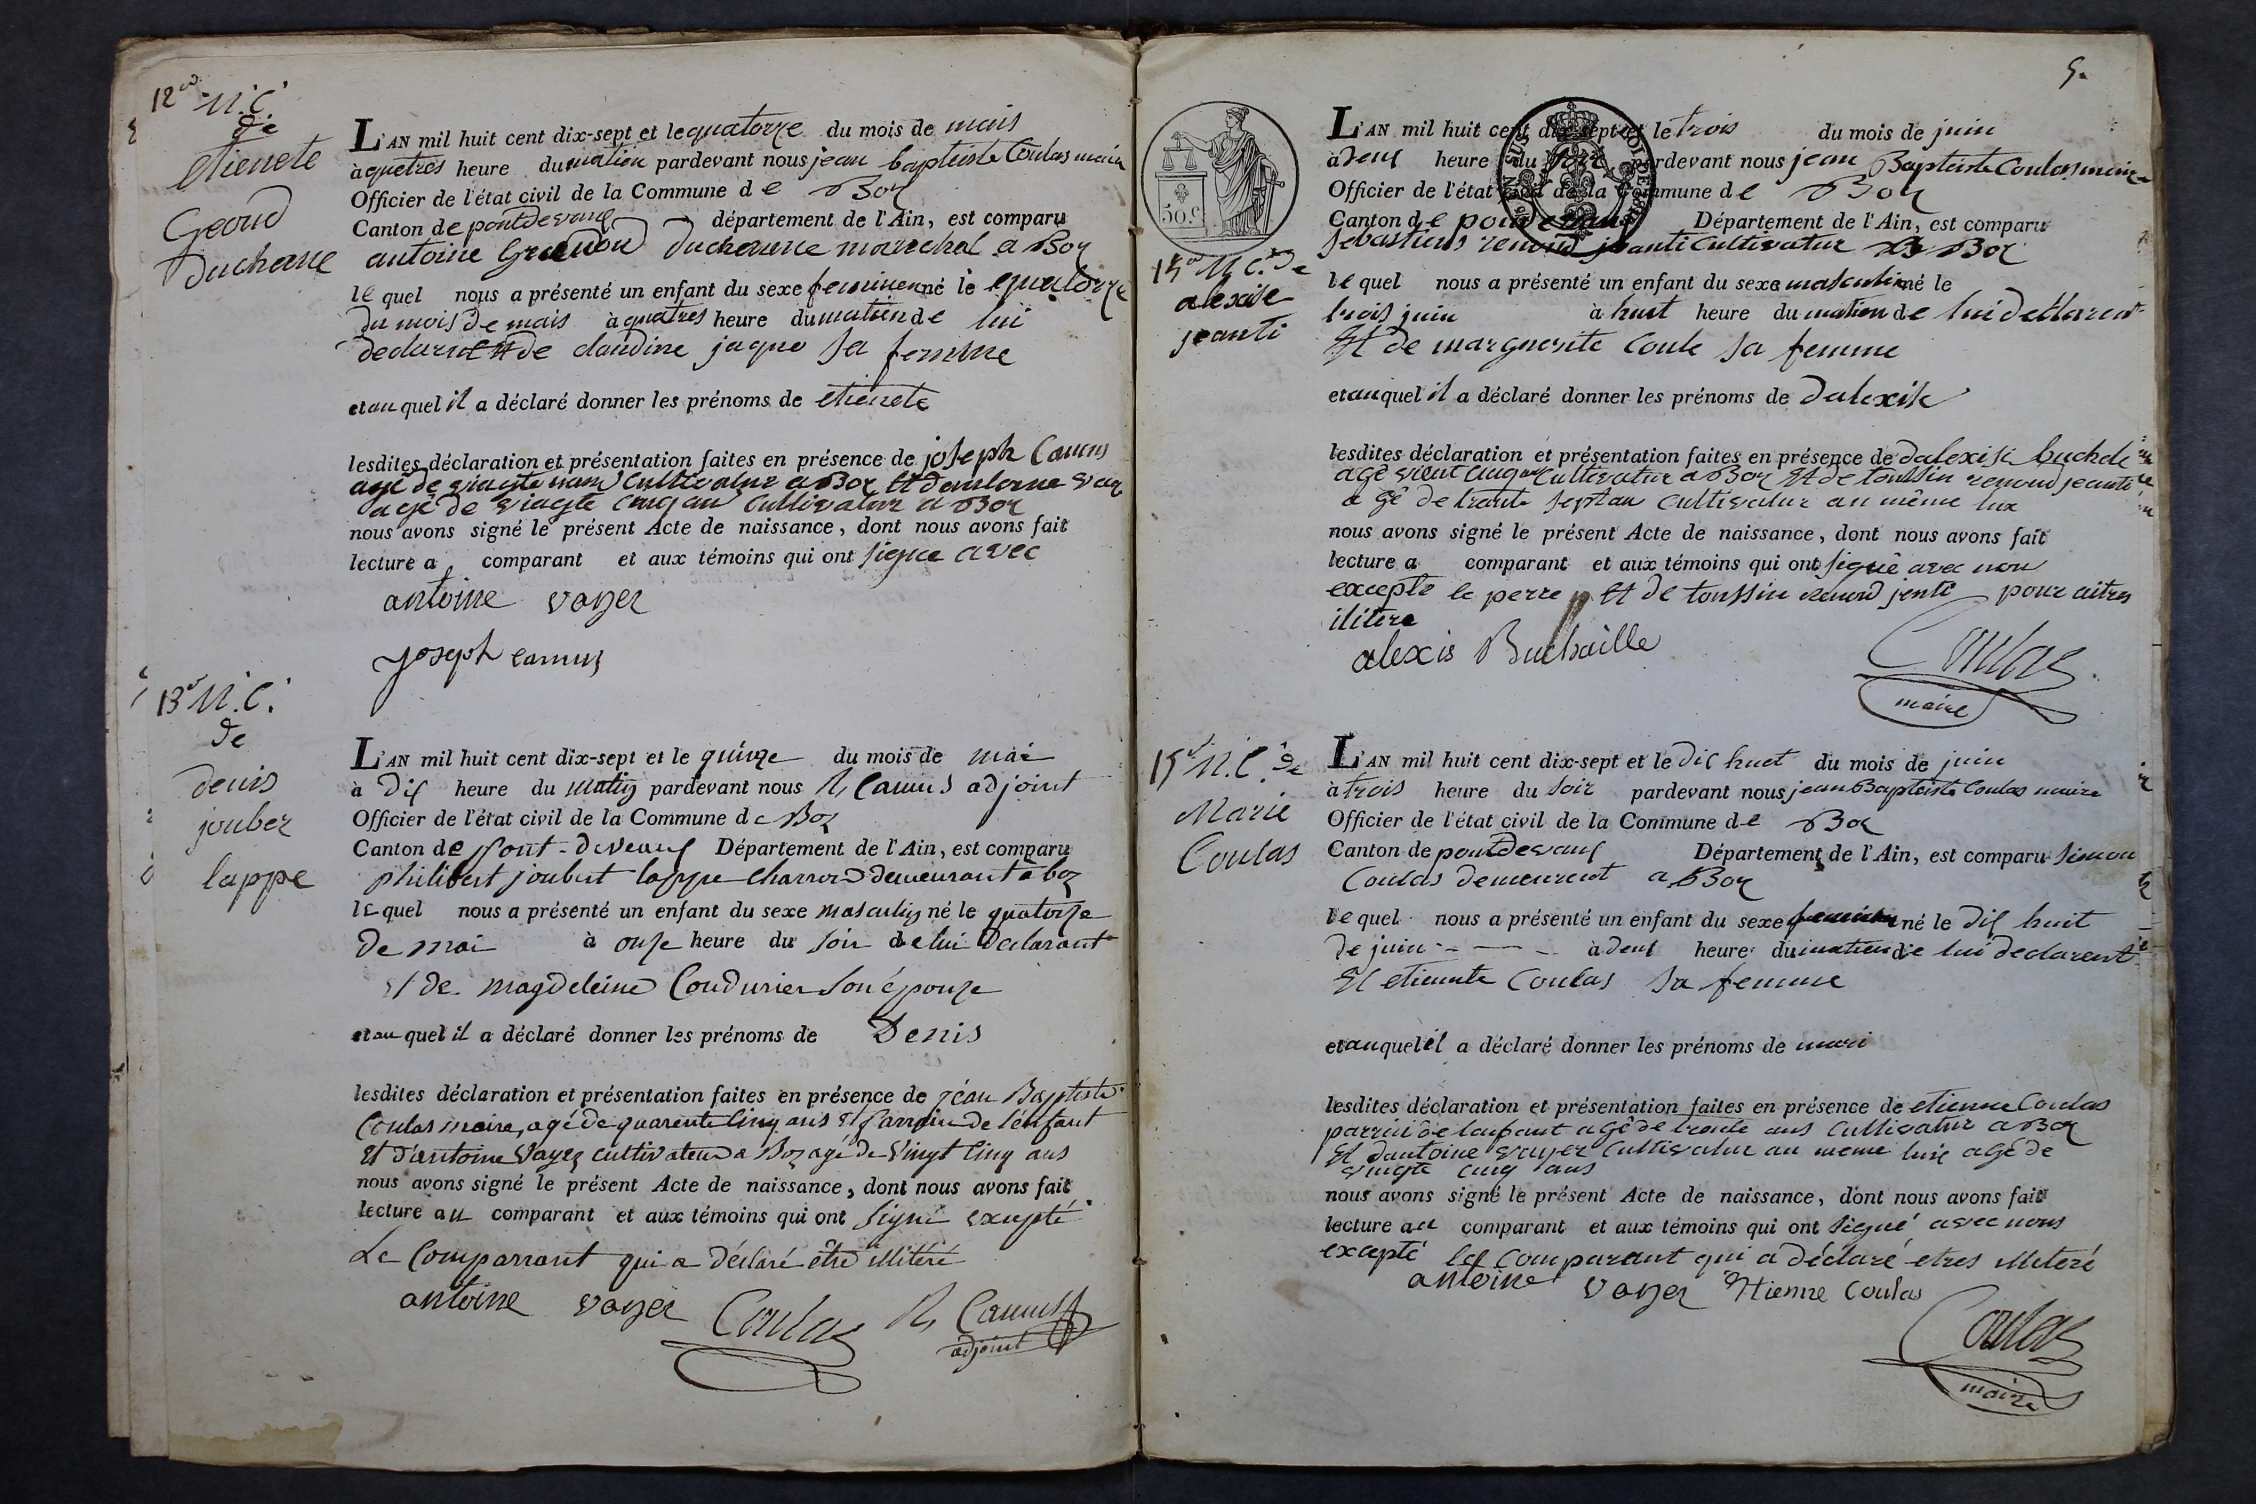 12e N. C.
de
etienete
Geoud
ducherne
L'AN mil huit cent dix-sept et le quatorze du mois de mais
à quetres heure du matien pardevant nous jean baptiste Coulas maire
Officier de l'état civil de la Commune de Boz
Canton de pontdevaux département de l'Ain, est comparu
antoine ducherne marechal a Boz
le quel nous a présenté un enfant du sexe feminien né le quatorze
du mois de mais à quatres heure du matien de lui
declarent et de claudine jaquo sa femme
et au quel il a déclaré donner les prénoms de etienete
lesdites déclaration et présentation faites en présence de joseph Camus
agé de viagte cultivatur a Boz Et
agé de viagte cinq an cultivatur a Boz
nous avons signé le présent Acte de naissance, dont nous avons fait
lecture a comparant et aux témoins qui ont signe avec
antoine voyer
joseph camus
13e N. C.
de
denis
jouber
lappe
L'AN mil huit cent dix-sept et le quinze du mois de mai
à dix heure du matin pardevant nous R, Camus adjoint
Officier de l'état civil de la Commune de Boz
Canton de pont-devaux Département de l'Ain, est comparu
philibert joubert lappe charron demeurant à boz
le quel nous a présenté un enfant du sexe masculin né le quatorze
de mai à onze heure du soir de lui declarant
et de magdeleine Coudurier son épouze
et au quel il a déclaré donner les prénoms de Denis
lesdites déclaration et présentation faites en présence de jean Baptiste
Coulas maire, agé de quarente cinq ans et parrain de l'enfant
et d'antoine Vayer cultivateur a Boz agé de Vingt cinq ans
nous avons signé le présent Acte de naissance, dont nous avons fait
lecture au comparant et aux témoins qui ont signé exupté
Le Comparrant qui a déclaré être illitéré
antoine voyer Coulas R, Camus
adjoint
5.
50.c
14e N. C. de
alexise
jeanti
L'AN mil huit cent dix-sept et le trois du mois de juin
à deux heure du soir pardevant nous jean Baptiste Coulas maire
Officier de l'état civil de la Commune de Boz
Canton de Département de l'Ain, est comparu
sebastiens renoud jeanti cultivatur Boz
le quel nous a présenté un enfant du sexe masculin né le
trois juin à huit heure du matien de lui declarent
Et de marguerite Coule sa femme
et auquel il a déclaré donner les prénoms de dalexise
lesdites déclaration et présentation faites en présence de dalexise
agé vient cinq an cultivatur a Boz Et de toussin renoud jeanti
a gé de trante sept an cultivatur au même lux
nous avons signé le présent Acte de naissance, dont nous avons fait
lecture a comparant et aux témoins qui ont signé avec nou
excepté le perre Et de toussin renoud jenti pour aitres
ilitere
alexis Buchaille
Coulas
maire
15e N. C. de
Marie
Coulas
L'AN mil huit cent dix-sept et le dix huet du mois de juin
à trois heure du soir pardevant nous jean Baptiste Coulas maire
Officier de l'état civil de la Commune de Boz
Canton de pontdevaux Département de l'Ain, est comparu simon
Coulas demeurent a Boz
le quel nous a présenté un enfant du sexe né le dix huit
de juin à deux heure du matien de lui declarent
Et etiennte Coulas sa femme
et auquel il a déclaré donner les prénoms de mari
lesdites déclaration et présentation faites en présence de etienne Coulas
parrin de lanfant agé de trente ans cultivatur a Boz
Et dantoine vayer cultivatur au meme lux agé de
vingte cinq ans
nous avons signé le présent Acte de naissance, dont nous avons fait
lecture au comparant et aux témoins qui ont signé avec nous
excepté le comparant qui a déclaré etres illeteré
antoine voyer Etienne Coulas
Coulas
maire